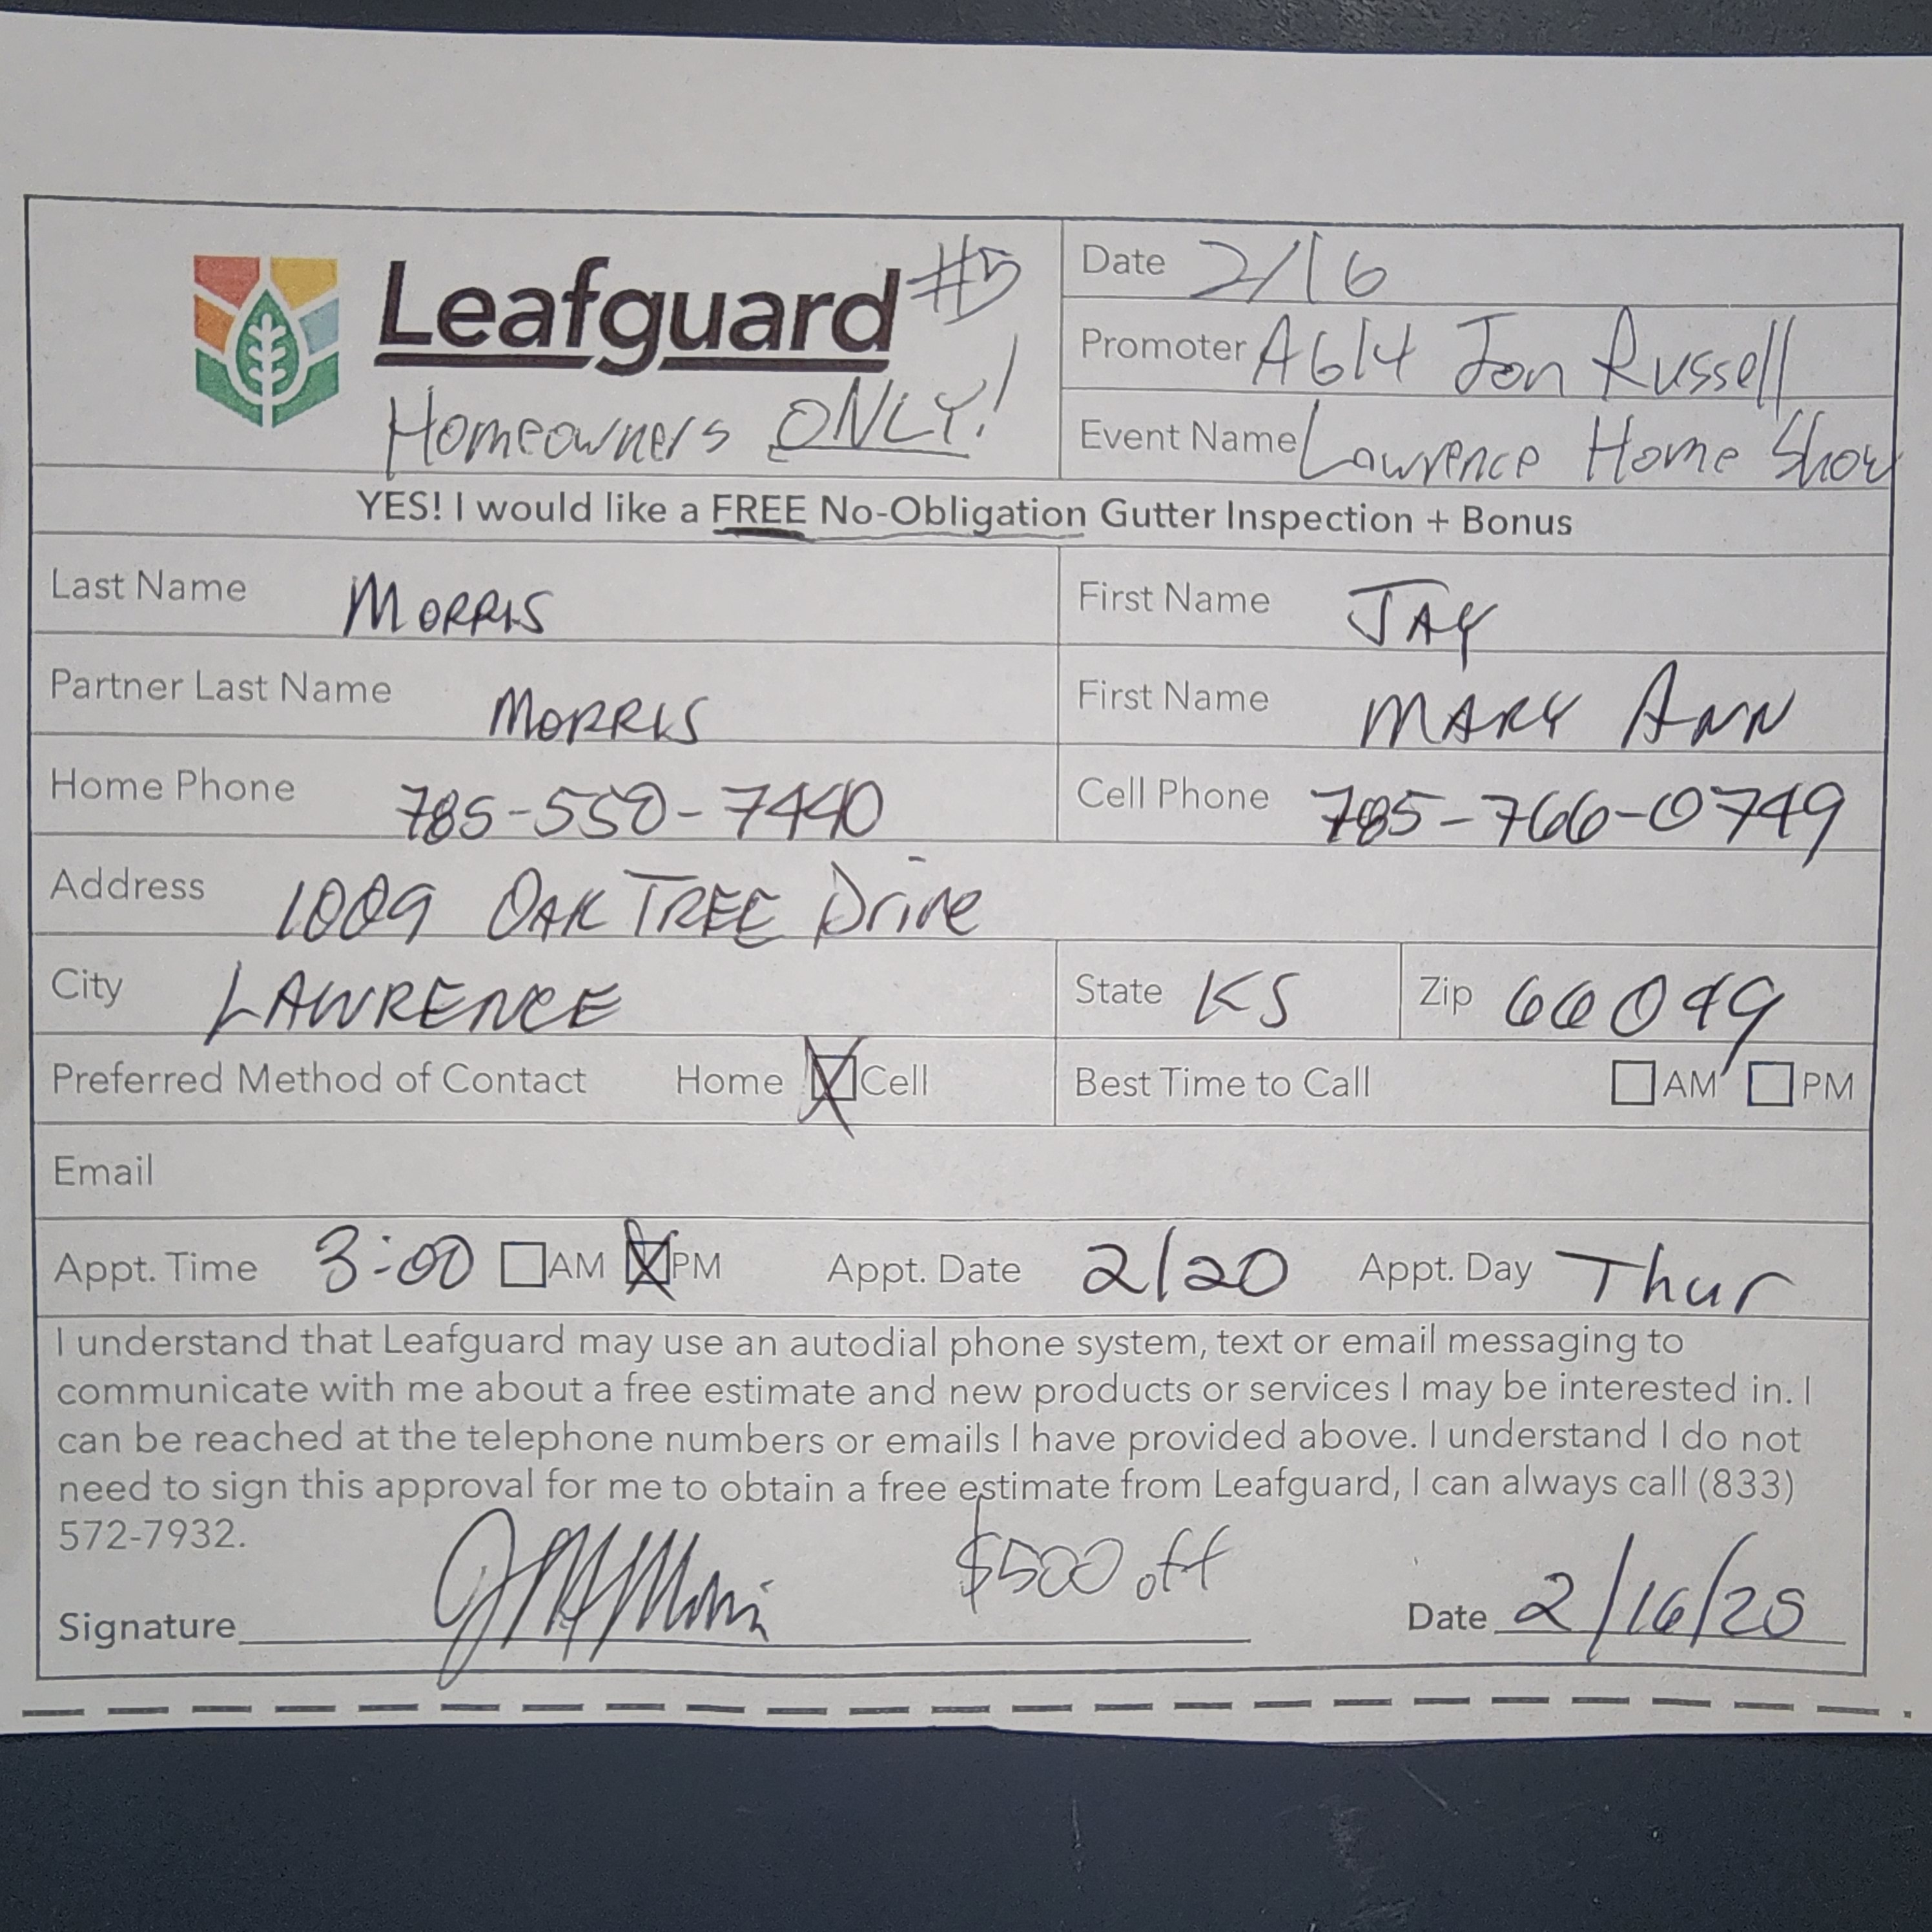 Leafguard #5
Homeowners ONLY!
Date 2/16
Promoter A614 Jon Russell
Event Name Lawrence Home Show
YES! I would like a FREE No-Obligation Gutter Inspection + Bonus
Last Name MORRIS
First Name JAY
Partner Last Name MORRIS
First Name MARY ANN
Home Phone 785-550-7440
Cell Phone 785-766-0749
Address 1009 OAK TREE Drive
City LAWRENCE
State KS
Zip 66049
Preferred Method of Contact Home Cell
Best Time to Call AM PM
Email
Appt. Time 3:00 AM PM Appt. Date 2/20 Appt. Day Thur
I understand that Leafguard may use an autodial phone system, text or email messaging to
communicate with me about a free estimate and new products or services I may be interested in. I
can be reached at the telephone numbers or emails I have provided above. I understand I do not
need to sign this approval for me to obtain a free estimate from Leafguard, I can always call (833)
572-7932.
$500 off
Signature
Date 2/16/25